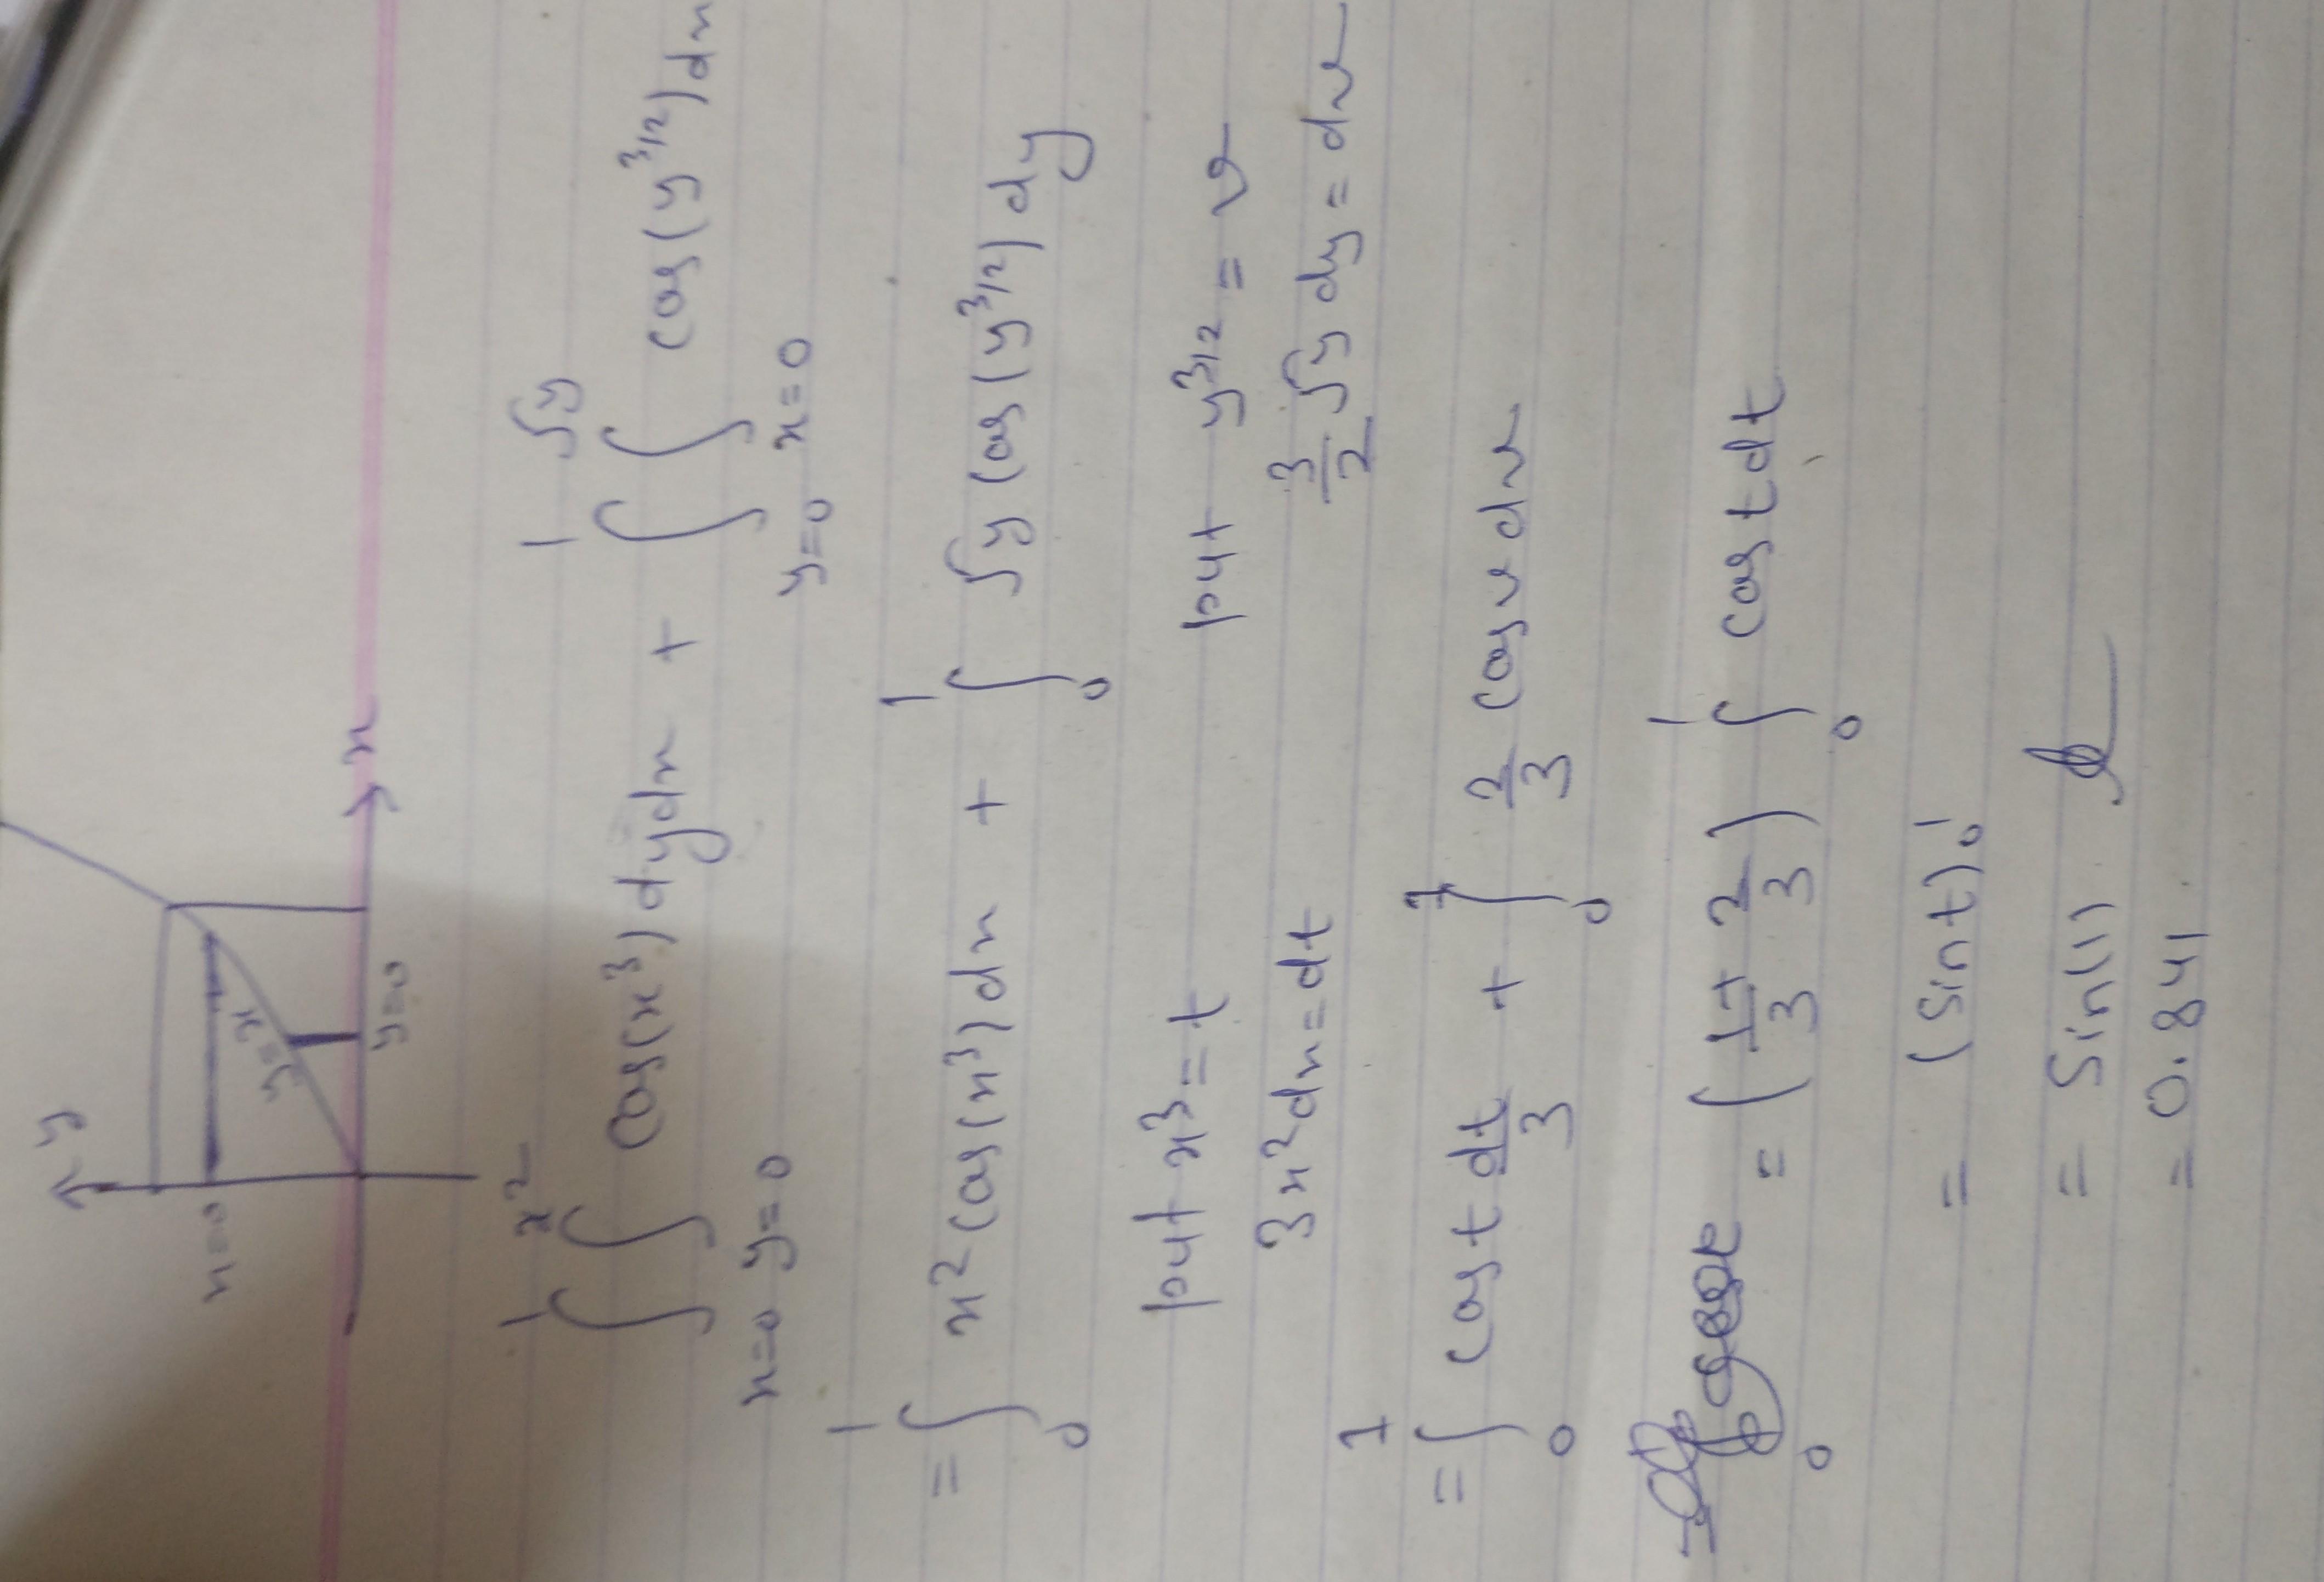 y
x=0
y=x²
y=0
x
∫₀¹ ∫₀^{x²} cos(x³) dy dx + ∫₀¹ ∫₀^{√y} cos(y^{3/2}) dx
x=0 y=0 y=0 x=0
= ∫₀¹ x² cos(x³) dx + ∫₀¹ √y cos(y^{3/2}) dy
put x³ = t put y^{3/2} = v
3x² dx = dt 3/2 √y dy = dv
= ∫₀¹ cos t dt/3 + ∫₀¹ 2/3 cos v dv
= (1/3 + 2/3) ∫₀¹ cos t dt
= (sin t)₀¹
= sin(1)
= 0.841.